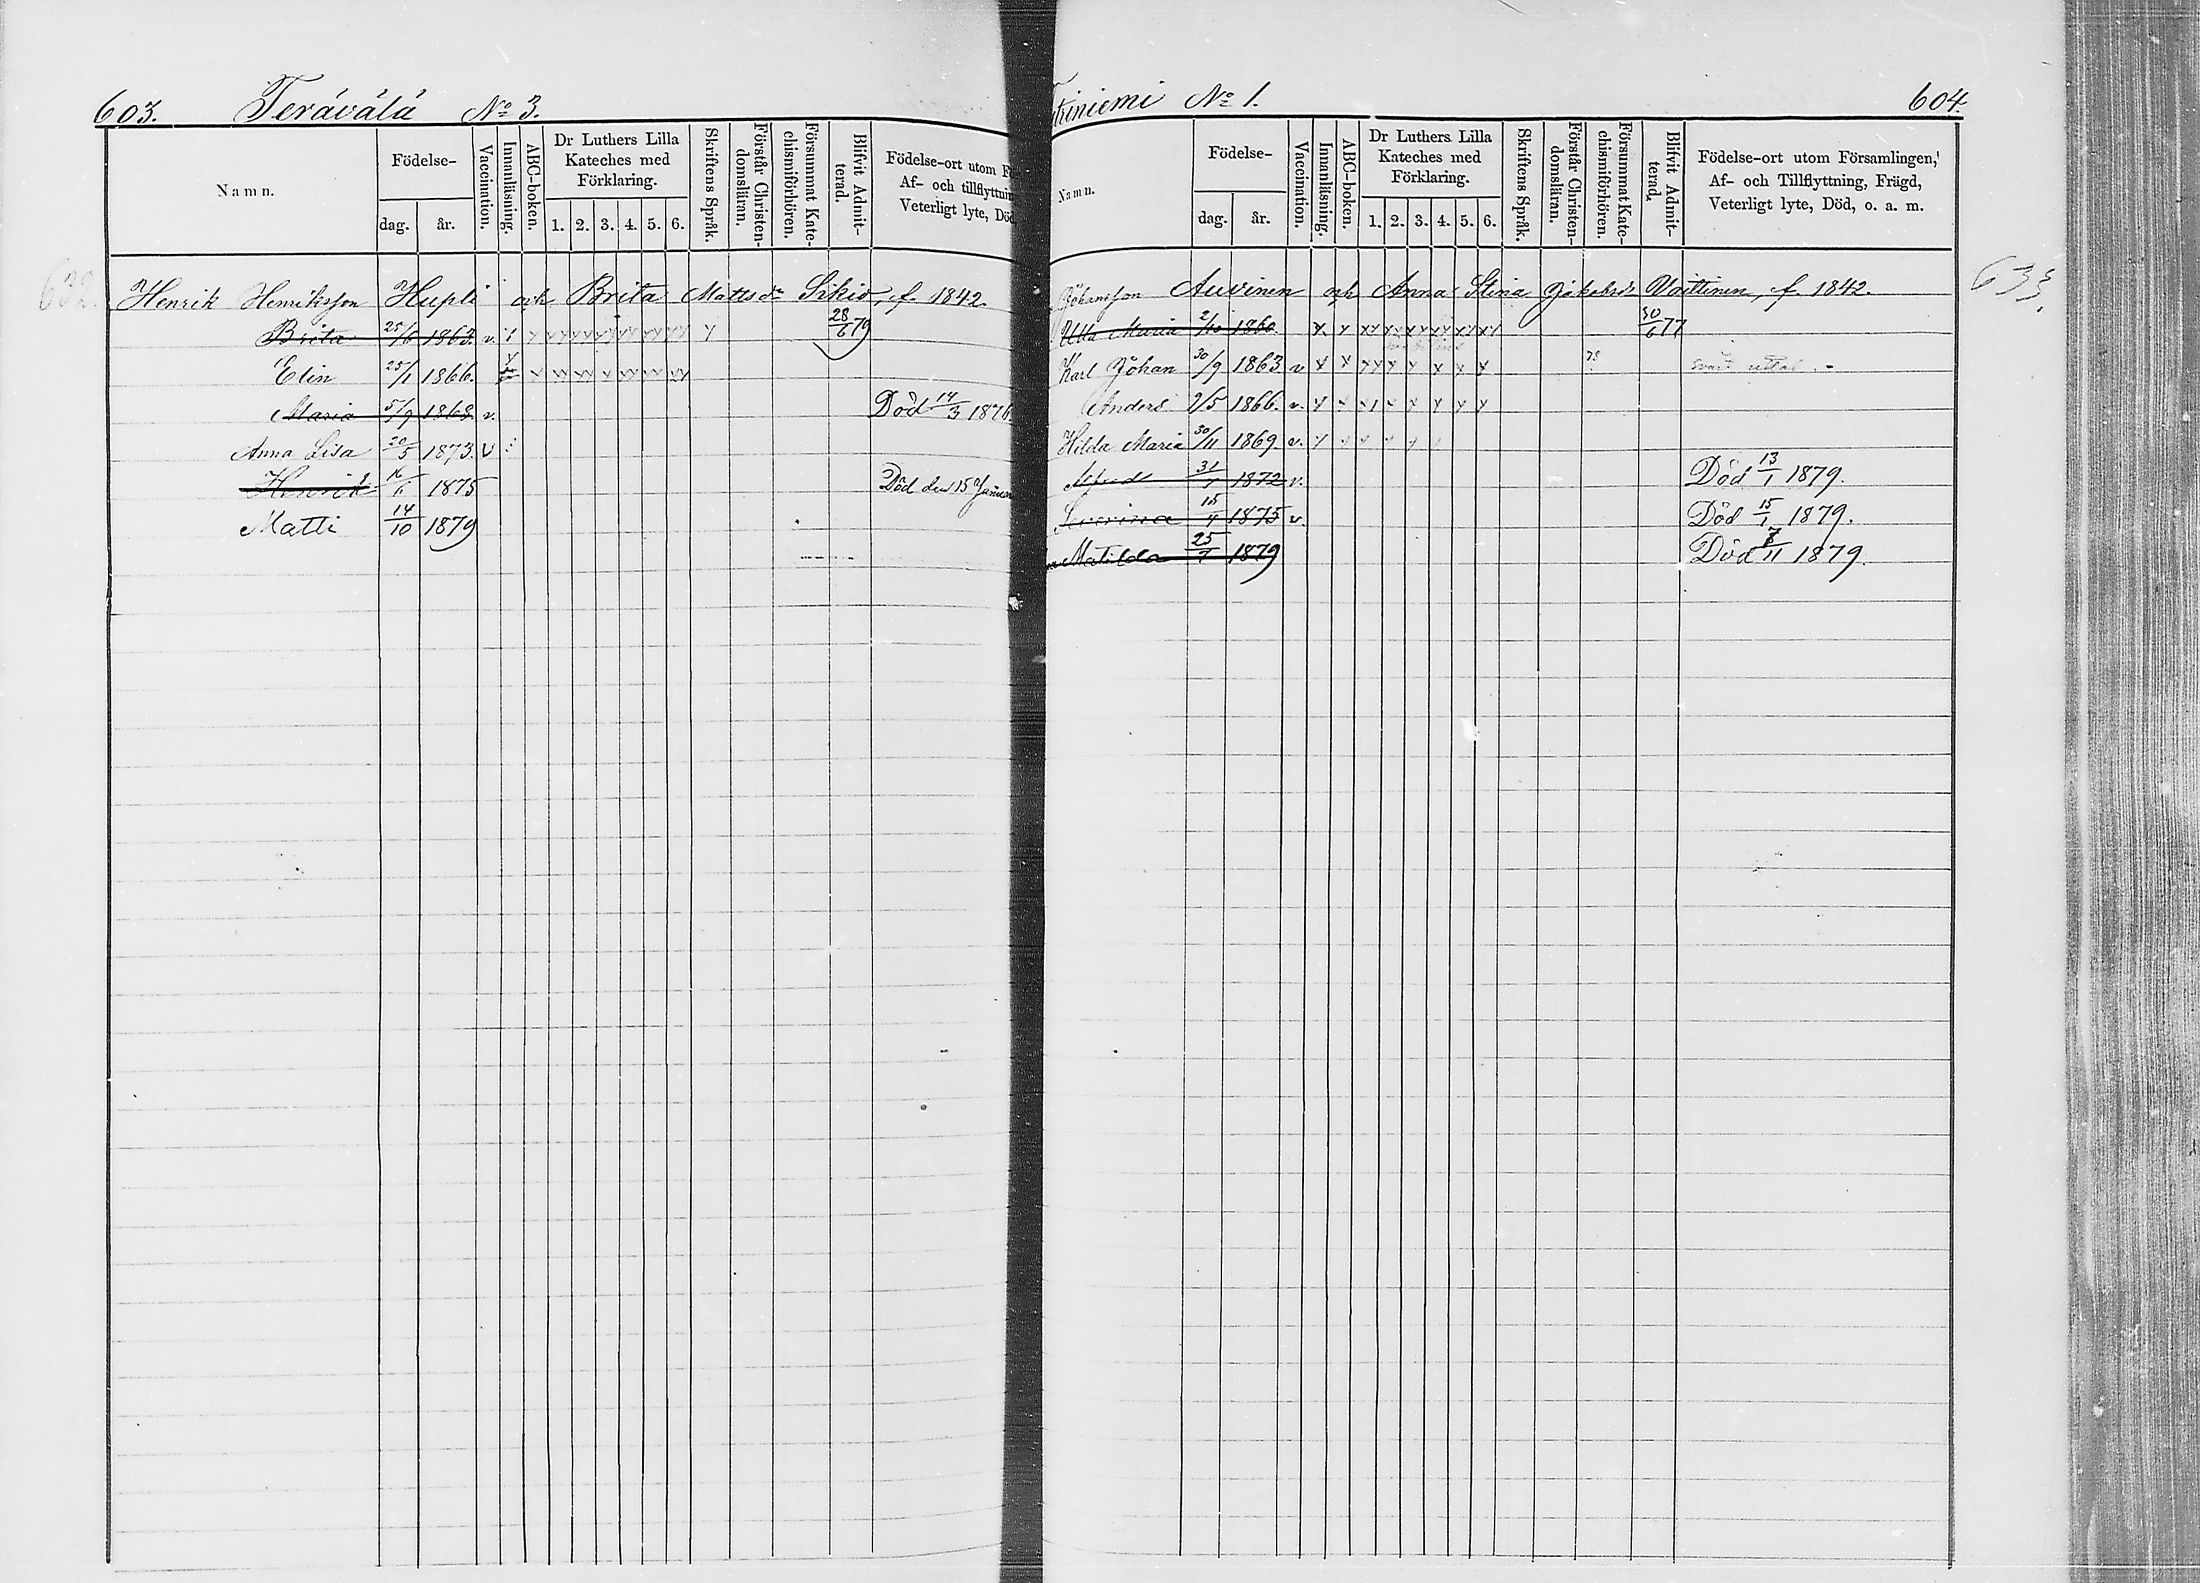 603. Terävälä No 3.
Namn. Födelse- dag. år. Vaccination. Innanläsning. ABC-boken. Dr Luthers Lilla Kateches med Förklaring. 1. 2. 3. 4. 5. 6. Skriftens Språk. Förstår Christendomsläran. Försummat Katechismiförhören. Blifvit Admitterad. Födelse-ort utom Af- och tillflyttnin Veterligt lyte, Död
632. Henrik Henriksson Hupli och Brita Matts dr Sikiö, f. 1842.
Brita 25/6 1863. v. 28/6 79
Elin 25/1 1866.
Maria 5/9 1868 v. Död 14/3 1876
Anna Lisa 20/5 1873. v
Henrik 1875 Död den 15 Januari
Matti 14/10 1879
niemi No 1. 604.
Namn. Födelse- dag. år. Vaccination. Innanläsning. ABC-boken. Dr Luthers Lilla Kateches med Förklaring. 1. 2. 3. 4. 5. 6. Skriftens Språk. Förstår Christendomsläran. Försummat Katechismiförhören. Blifvit Admitterad. Födelse-ort utom Församlingen, Af- och Tillflyttning, Frägd, Veterligt lyte, Död, o. a. m.
Johansson Auvinen och Anna Stina Jakobsdr Voittinen, f. 1842. 633.
Ulla Maria 2/10 1860 30/6 77
Karl Johan 30/9 1863 v 78
Anders 2/5 1866. v.
Hilda Maria 30/11 1869. v.
Alfred 31/1 1872 v. Död 13/1 1879.
Severina 15/4 1875 v. Död 15/1 1879.
Matilda 25/7 1879 Död 7/11 1879.